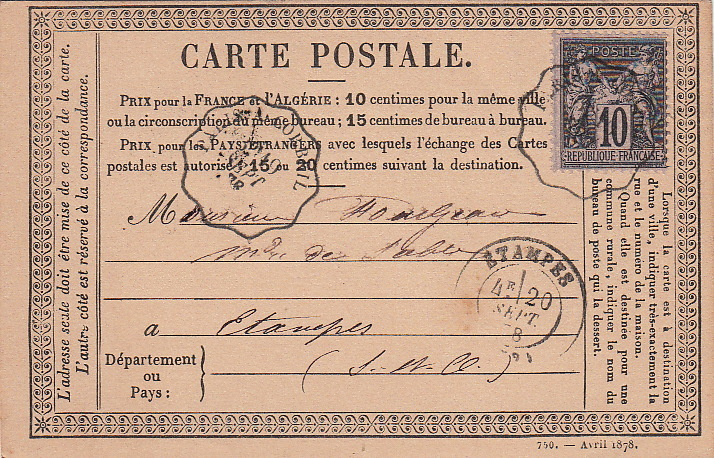 CARTE POSTALE.
PRIX pour la FRANCE et l'ALGÉRIE : 10 centimes pour la même ville
ou la circonscription du même bureau ; 15 centimes de bureau à bureau.
PRIX pour les PAYS ÉTRANGERS avec lesquels l'échange des Cartes
postales est autorisé 15 ou 20 centimes suivant la destination.
POSTE
10
RÉPUBLIQUE FRANÇAISE
L'adresse seule doit être mise de ce côté de la carte.
L'autre côté est réservé à la correspondance.
Lorsque la carte est à destination
d'une ville, indiquer très-exactement la
rue et le numéro de la maison.
Quand elle est destinée pour une
commune rurale, indiquer le nom du
bureau de poste qui la dessert.
SEPT
78
Monsieur
des Sables
ÉTAMPES
4E 20
SEPT.
78
a Etampes
Département
ou
Pays :
(S.-et-O.)
750. — Avril 1878.